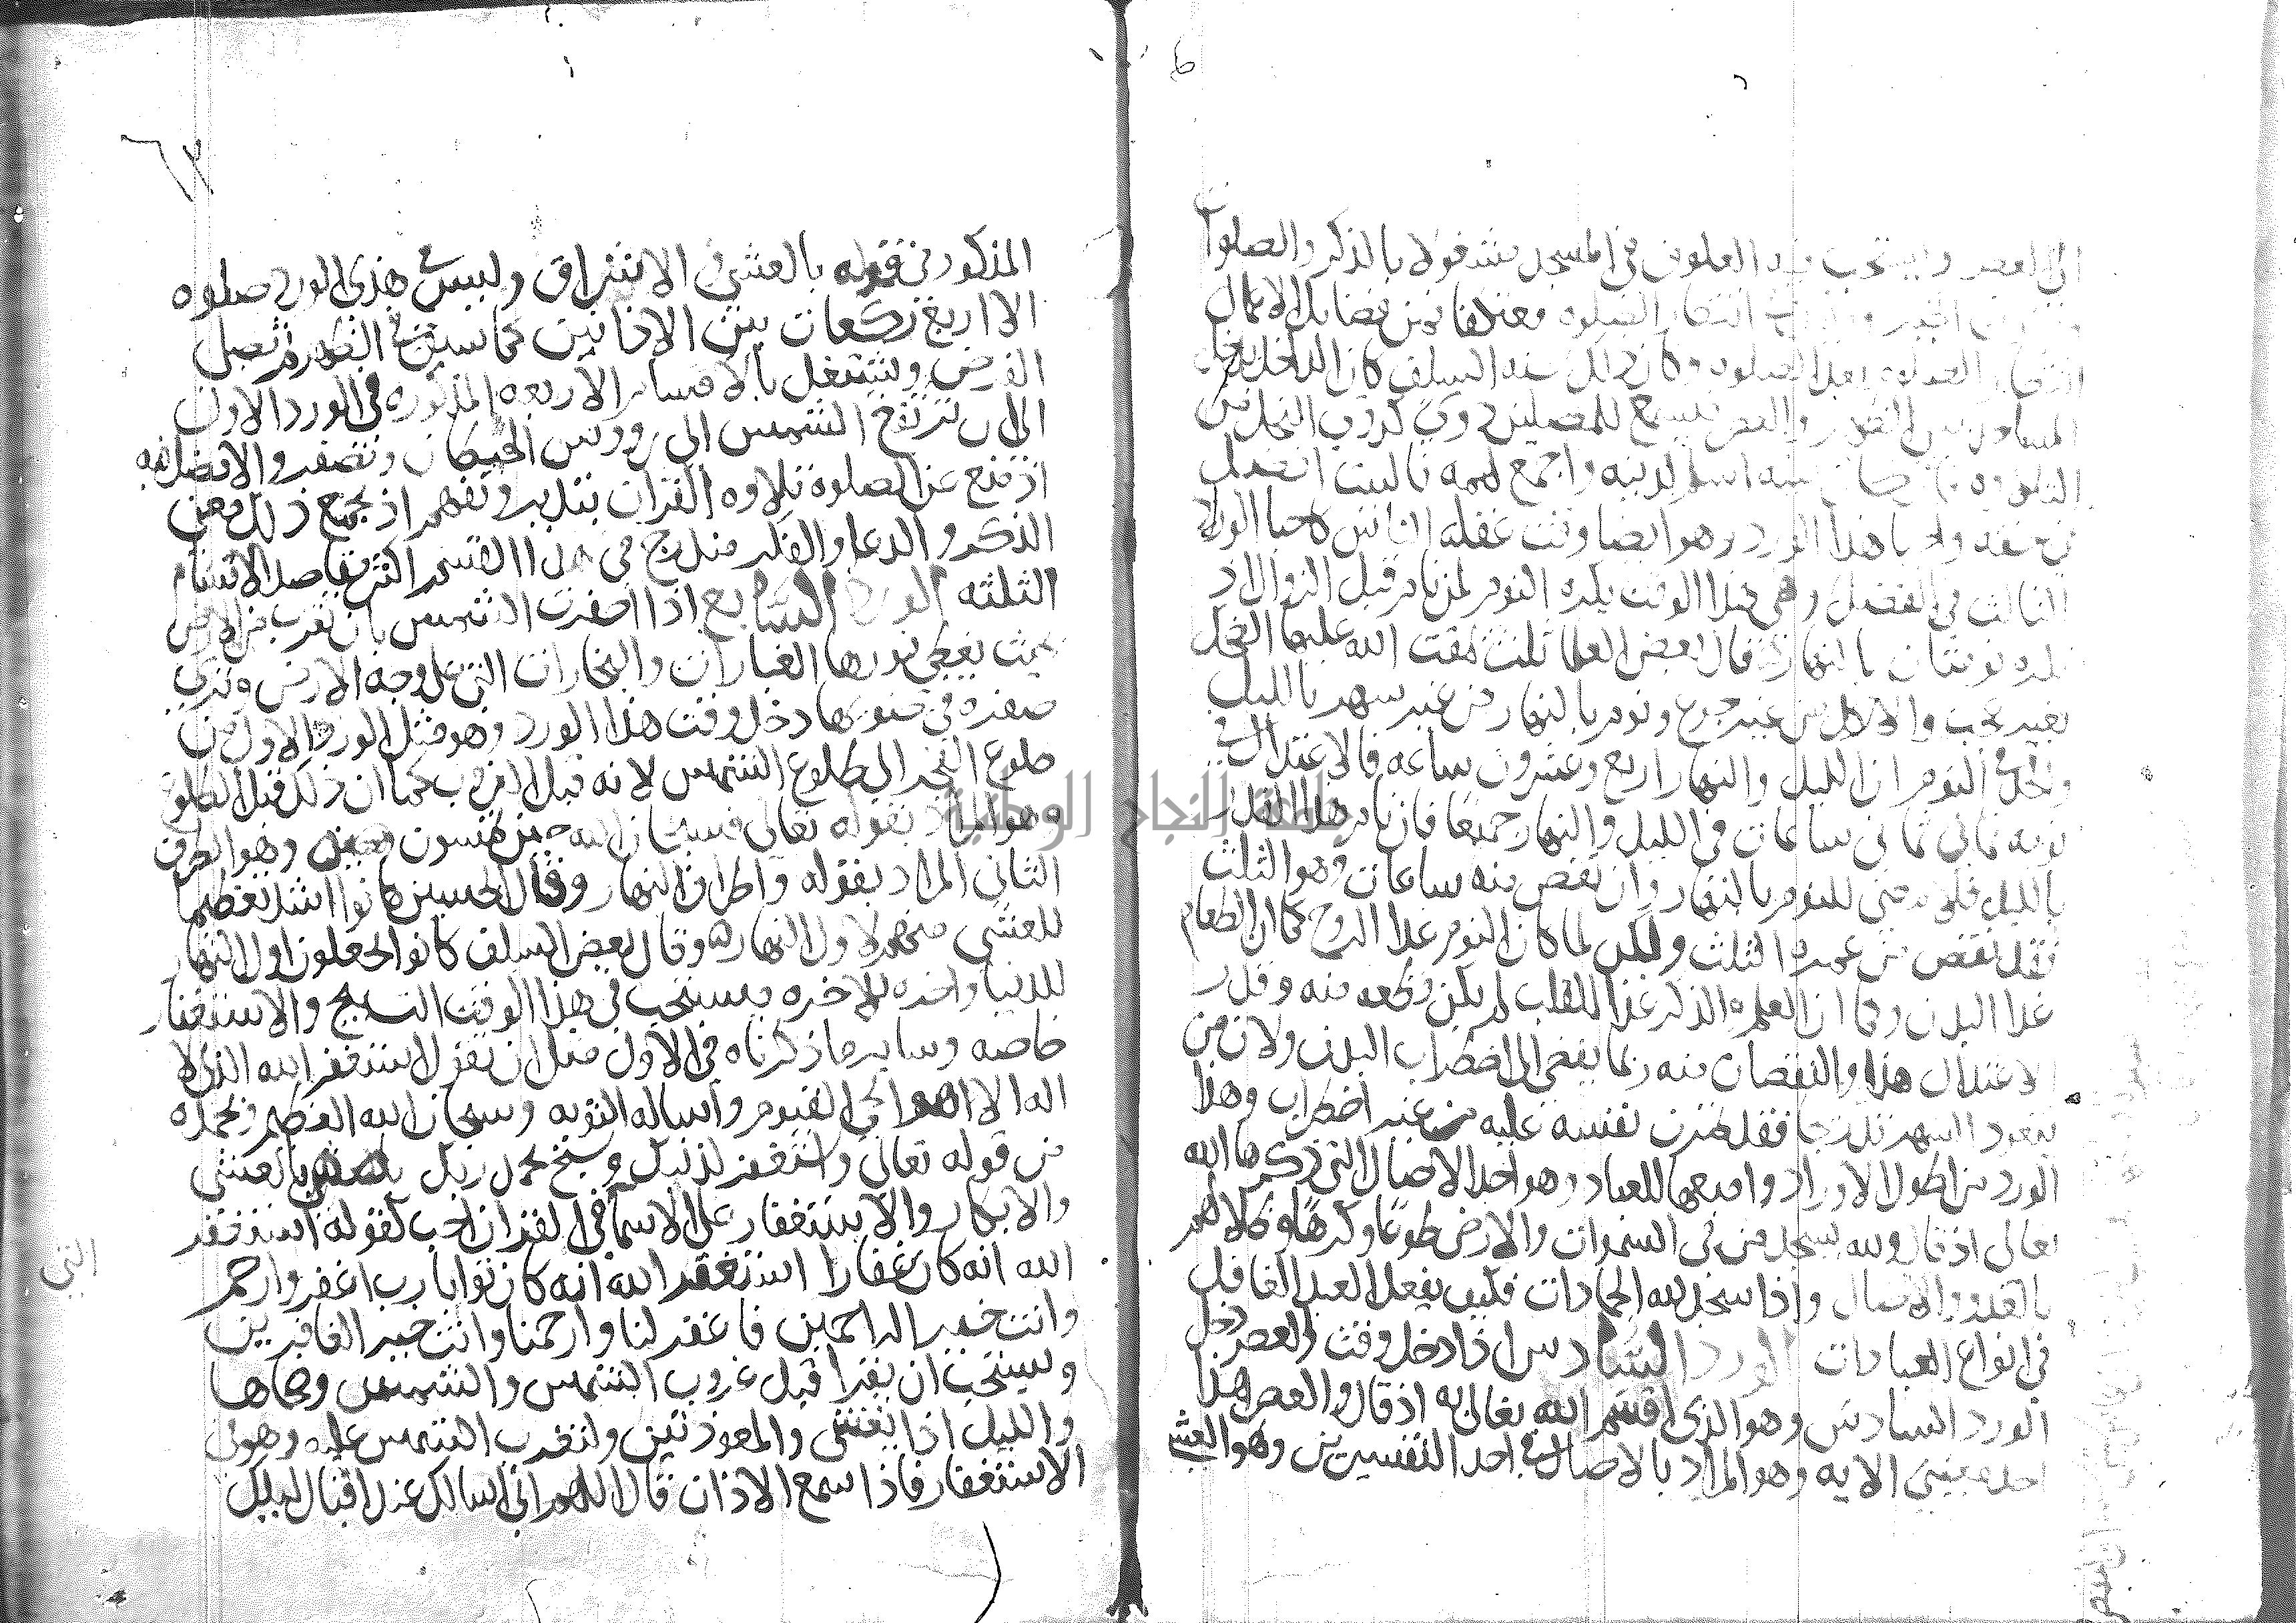 الى العصر ويستحب فيه العكوف في المسجد مشتغولا بالذكر والصلوات
الخير انتظار الصلوه معتكفا فمن فضايل الاعمال
انتظار الصلوه بعد الصلوه وكان ذلك سنه السلف كان الداخل يدخل
المسجد بين الظهر والعصر فيسمع للمصلين دوي كدوي النحل من
التلاوه فان كان بيته اسلم لدينه واجمع لهمه فالبيت افضل
في حقه واحيا هذا الورد وهو ايضا وقت غفله الناس كاحيا الورد
الثالث في الفضل وفي هذا الوقت يكره النوم لمن نام قبل الزوال اذ
يكره نومتان بالنهار قال بعض العلما ثلث يمقت الله عليها الضحك
بغير عجب والاكل من غير جوع ونوم بالنهار من غير سهر بالليل
والحد في النوم ان الليل والنهار اربع وعشرون ساعه فالاعتدال في
نومه ثماني ساعات في الليل والنهار جميعا فان نام هذا القدر
بالليل فلا معنى للنوم بالنهار وان نقص منه ساعات وهو الثلث
نقص من عمره الثلث ولكن لما كان النوم غذا الروح كما ان الطعام
غذا البدن وكما ان العلم والذكر غذا القلب لم يكن قطعه منه وقدر
الاعتدال هذا والنقصان منه ربما يفضي الى اضطراب البدن ولان من
يتعود السهر تدريجا فقد تمرن نفسه عليه من غير اضطراب وهذا
الورد من اطول الاوراد وامتعها للعباد وهو احد الاصال التي ذكرها الله
تعالى اذ قال ولله يسجد من في السموات والارض طوعا وكرها وظلالهم
بالغدو والاصال واذا سجد لله الجمادات فكيف يغفل العبد الغافل
في انواع العبادات الورد السادس اذا دخل وقت العصر دخل
الورد السادس وهو الذي اقسم الله تعالى به اذ قال والعصر هذا
احد معنيي الايه وهو المراد بالاصال في احد التفسيرين وهو العشي
المذكور في قوله بالعشي والاشراق وليس في هذى الورد صلوه
الا اربع ركعات بين الاذانين كما سبق في الظهر ثم تصلى
الفرض ويشتغل بالاقسام الاربعه المذكوره في الورد الاول
الى ان ترتفع الشمس الى رووس الحيطان وتصفر والافضل فيه
اذ منع عن الصلوة تلاوه القران بتدبر وتفهم اذ يجمع ذلك معنى
الذكر والدعا والفكر فيندرج في هذا القسم اكثر مقاصد الاقسام
الثلثه الورد السابع اذا اصفرت الشمس بان تقرب من الارض
بحيث يغطي نورها الغبارات والبخارات التي على وجه الارض وترى
صفره في ضوءها دخل وقت هذا الورد وهو مثل الورد الاول من
طلوع الفجر الى طلوع الشمس لانه قبل الغروب كما ان ذلك قبل الطلوع
وهو المراد بقوله تعالى فسبحان الله حين تمسون وحين وهو الطرف
الثاني المراد بقوله واطراف النهار وقال الحسن كانوا اشد تعظيما
للعشي منهم لاول النهار وقال بعض السلف كانوا يجعلون اول النهار
للدنيا واخره للاخره فيستحب في هذا الوقت التسبيح والاستغفار
خاصه وساير ما ذكرناه في الاول مثل ان يقول استغفر الله الذي لا
اله الا هو الحي القيوم واساله التوبه وسبحان الله العظيم وبحمده
من قوله تعالى واستغفر لذنبك وسبح بحمد ربك بالعشي
والابكار والاستغفار على الاسما في القران احب كقوله استغفر
الله انه كان غفارا استغفر الله انه كان توابا رب اغفر وارحم
وانت خير الراحمين فاغفر لنا وارحمنا وانت خير الغافرين
ويستحب ان يقرا قبل غروب الشمس والشمس وضحاها
والليل اذا يغشى والمعوذتين ولتغرب الشمس عليه وهو في
الاستغفار فاذا سمع الاذان قال اللهم اني اسالك عند اقبال ليلك
التي
٦٢
جامعة النجاح الوطنية